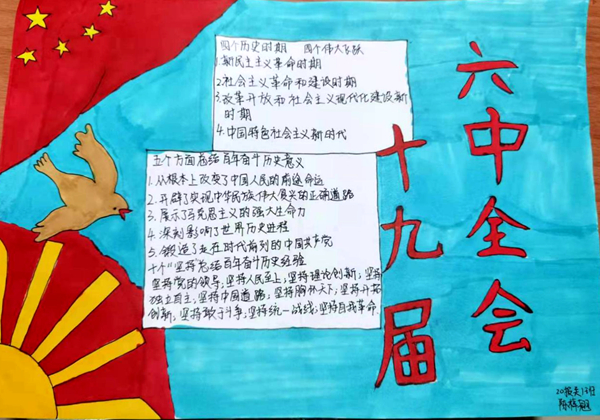 十九届
六中全会
四个历史时期 四个伟大飞跃
1.新民主主义革命时期
2.社会主义革命和建设时期
3.改革开放和社会主义现代化建设新
时期
4.中国特色社会主义新时代
五个方面总结百年奋斗历史意义
1.从根本上改变了中国人民的前途命运
2.开辟了实现中华民族伟大复兴的正确道路
3.展示了马克思主义的强大生命力
4.深刻影响了世界历史进程
5.锻造了走在时代前列的中国共产党
十个"坚持"总结百年奋斗历史经验
坚持党的领导,坚持人民至上,坚持理论创新,坚持
独立自主,坚持中国道路,坚持胸怀天下,坚持开拓
创新,坚持敢于斗争,坚持统一战线,坚持自我革命.